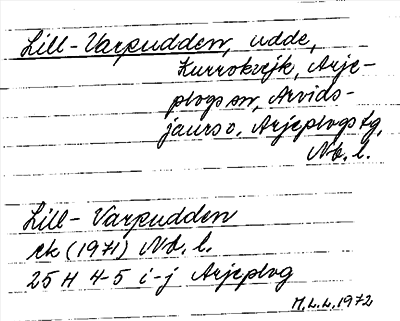 Lill-Varpudden, udde,
Kurrokvejk, Arje-
plogs sn, Arvids-
jaurs o, Arjeplogs tg,
Nb. l.
Lill-Varpudden
ek (1971) Nb. l.
25 H 4-5 i-j Arjeplog
M.L.L. 1972